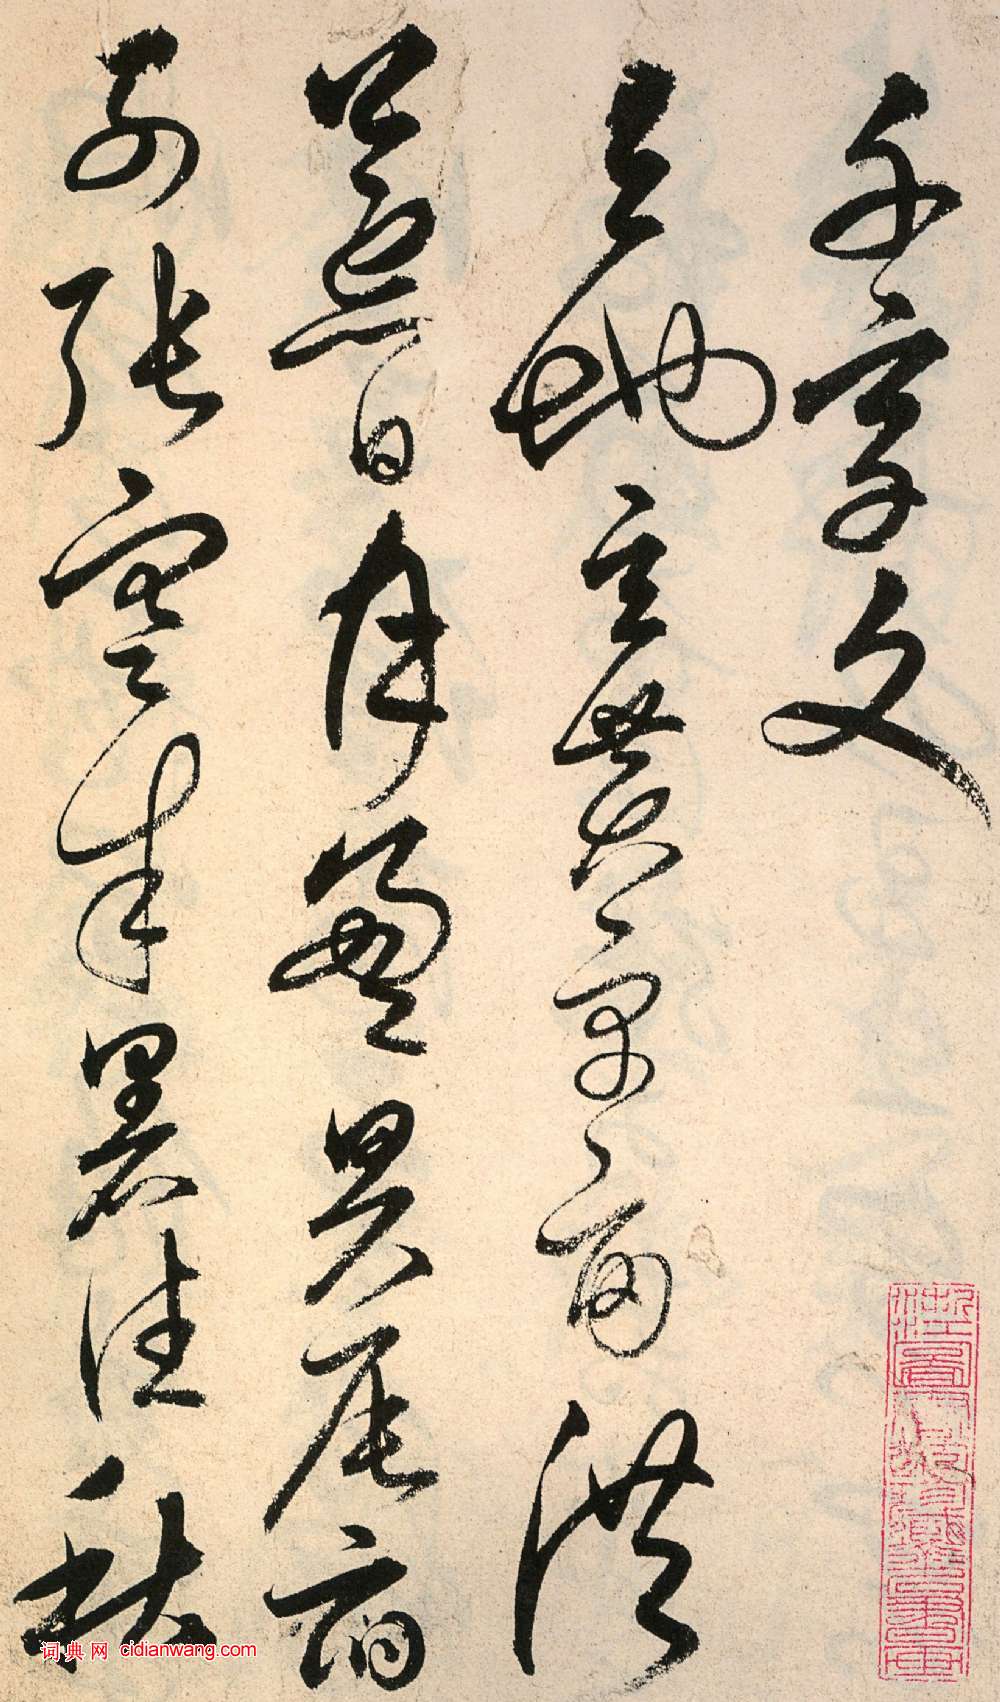 千字文
天地玄黃宇宙洪
荒日月盈昃辰宿
列張寒來暑往秋
词典网 cidianwang.com